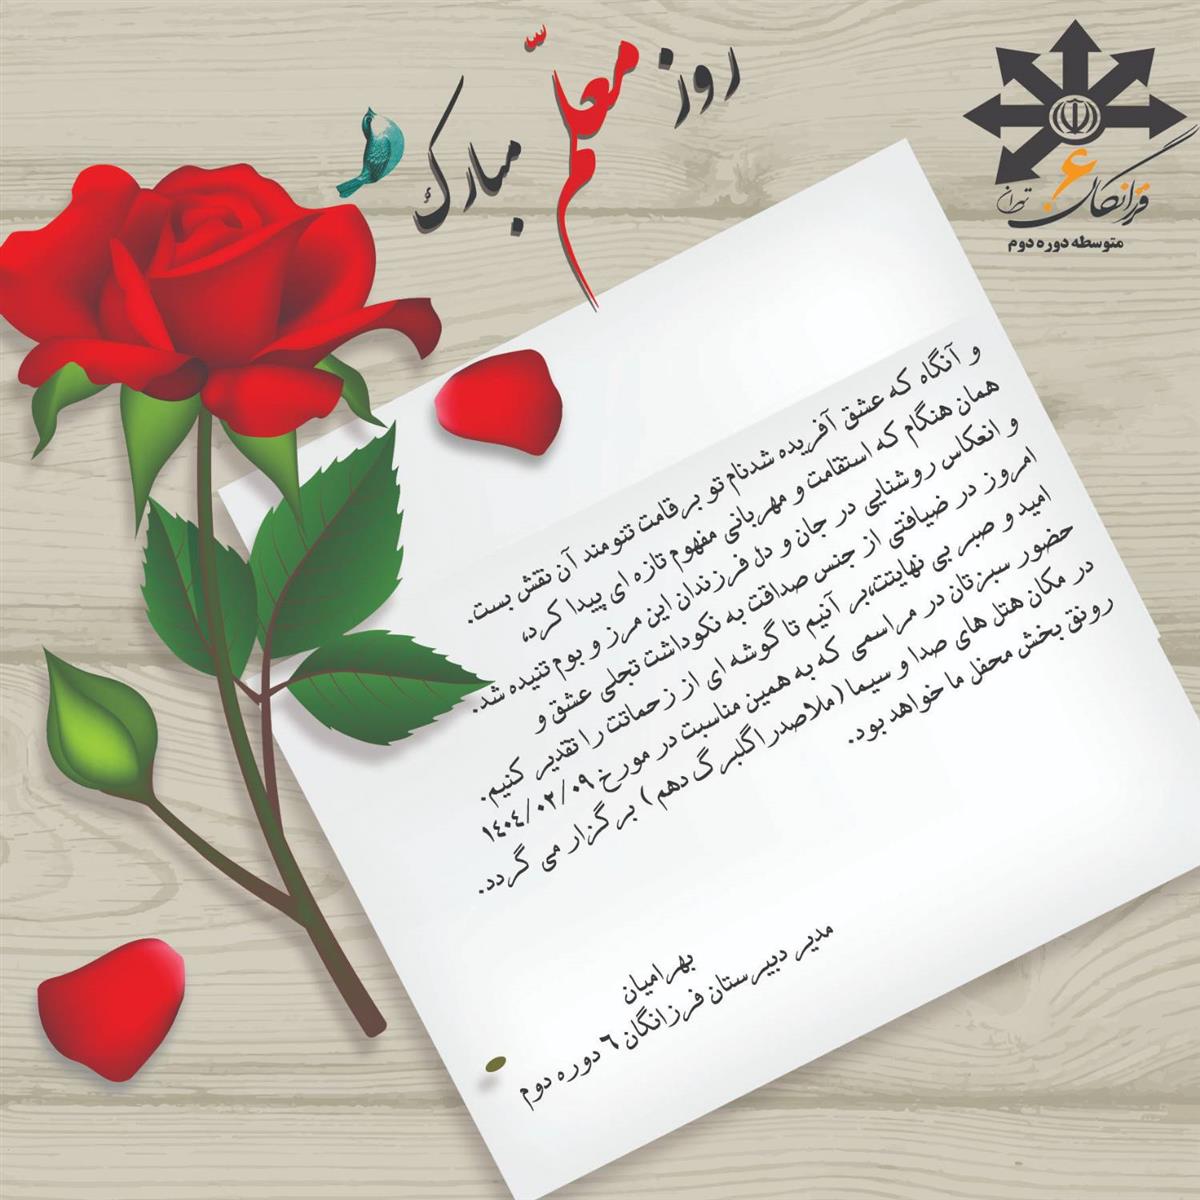 روز معلّم مبارک
فرزانگان ۶ تهران
متوسطه دوره دوم
و آنگاه که عشق آفریده شدنام تو بر قامت تنومند آن نقش بست.
همان هنگام که استقامت و مهربانی مفهوم تازه ای پیدا کرد،
و انعکاس روشنایی در جان و دل فرزندان این مرز و بوم تنیده شد.
امروز در ضیافتی از جنس صداقت به نکوداشت تجلی عشق و
امید و صبر بی نهایتت،بر آنیم تا گوشه ای از زحماتت را تقدیر کنیم.
حضور سبزتان در مراسمی که به همین مناسبت در مورخ ۱۴۰۴/۰۲/۰۹
در مکان هتل های صدا و سیما (ملاصدراگلبرگ دهم) برگزار می گردد.
رونق بخش محفل ما خواهد بود.
بهرامیان
مدیر دبیرستان فرزانگان ۶ دوره دوم